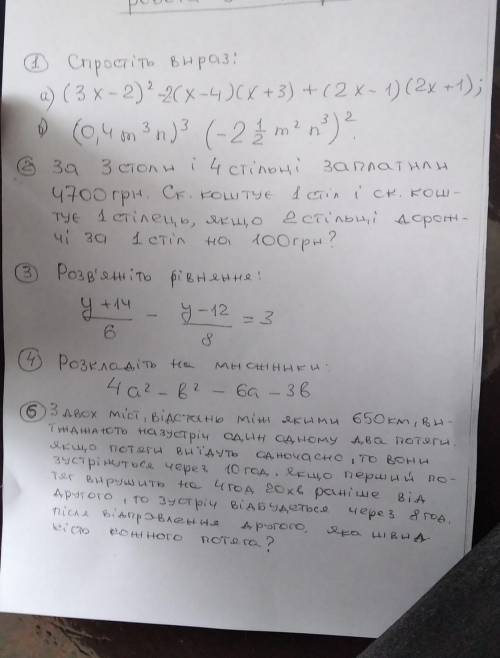 ① Спростіть вираз:
а) (3x-2)² -2(x-4)(x+3) + (2x-1)(2x+1);
б) (0,4m³n)³ (-2 1/2 m²n³)².
② За 3 столи і 4 стільці заплатили
4700грн. Ск. коштує 1 стіл і ск. кош-
тує 1 стілець, якщо 2 стільці дорож-
чі за 1 стіл на 100грн?
③ Розв'яжіть рівняння:
(y+14)/6 - (y-12)/8 = 3
④ Розкладіть на множники:
4a² - b² - 6a - 3b
⑤ З двох міст, відстань між якими 650км, ви-
їжджають назустріч один одному два потяги.
якщо потяги виїдуть одночасно, то вони
зустрінуться через 10год. якщо перший по-
тяг вирушить на 4год 20хв раніше від
другого, то зустріч відбудеться через 8год.
після відправлення другого. яка швид
кість кожного потяга?